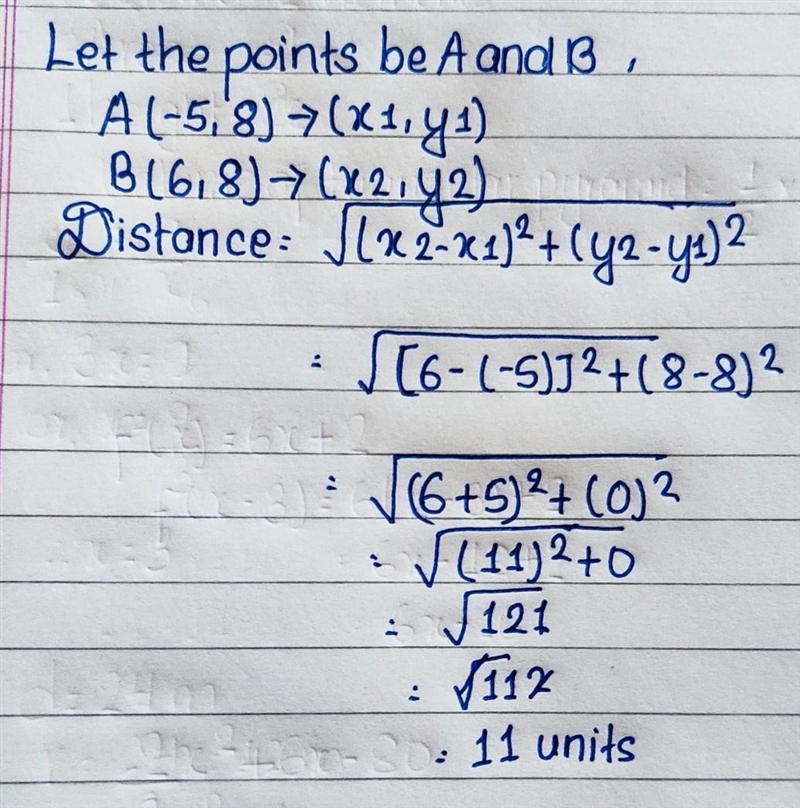 Let the points be A and B,
A(-5,8)→(x1,y1)
B(6,8)→(x2,y2)
Distance = √(x2-x1)²+(y2-y1)²
= √[6-(-5)]²+(8-8)²
= √(6+5)²+(0)²
= √(11)²+0
= √121
= √11
= 11 units